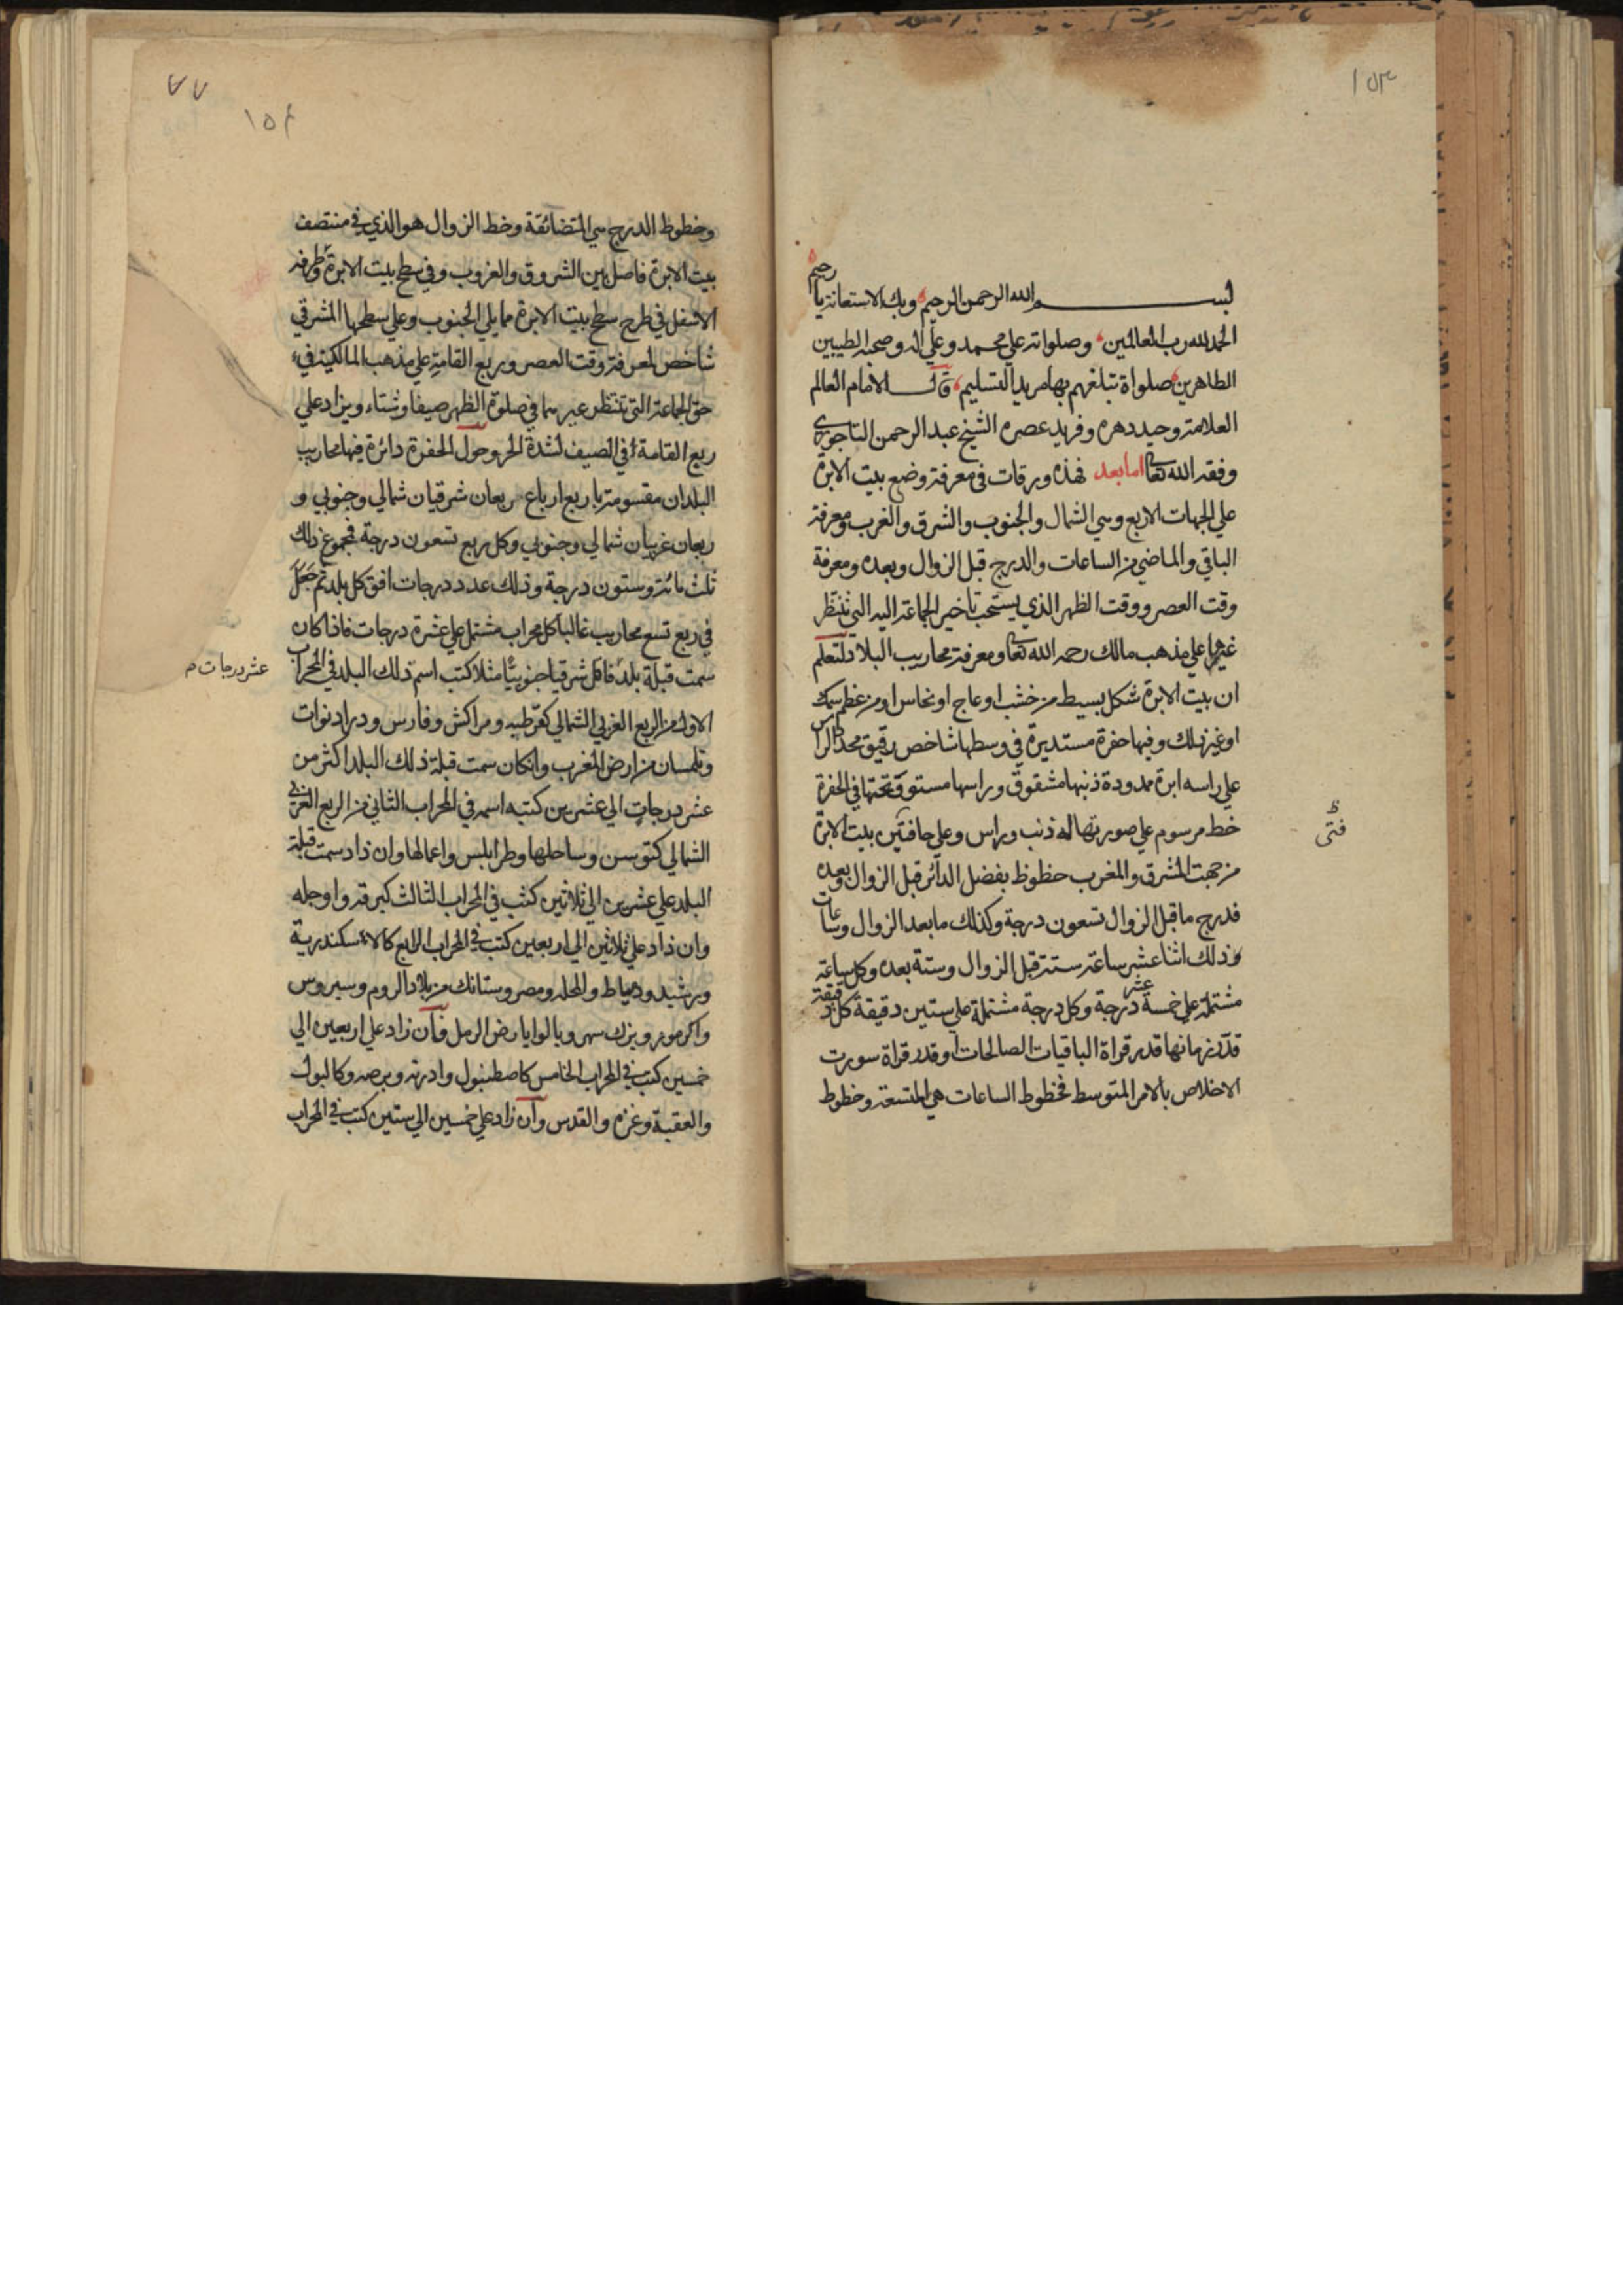 ١٥٣
بســـم الله الرحمن الرحيم وبك الاستعانة يا رحيم
الحمد لله رب العالمين وصلواته علي محمد وعلي اله وصحبه الطيبين
الطاهرين صلواة تبلغهم بها مريد التسليم قال الامام العالم
العلامة وحيد دهره وفريد عصره الشيخ عبد الرحمن التاجوري
وفقه الله تعا اما بعد فهذه ورقات في معرفة وضع بيت الابرة
علي الجهات الاربع وهي الشمال والجنوب والشرق والغرب ومعرفة
الباقي والماضي من الساعات والدرج قبل الزوال وبعده ومعرفة
وقت العصر ووقت الظهر الذي يستحب تأخير الجماعة اليه التي تنتظر
غيرها علي مذهب مالك رحمه الله تعا ومعرفة محاريب البلاد لتعلم
ان بيت الابرة شكل بسيط من خشب او عاج او نحاس او من عظم سمك
او غير ذلك وفيها حفرة مستديرة في وسطها شاخص رقيق محدد الراس
علي راسه ابرة ممدودة ذنبها مشقوق وراسها مستو وتحتها في الحفرة
خط مرسوم علي صورتها له ذنب وراس وعلي حافتين بيت الابرة
فتى
من جهت المشرق والمغرب حظوظ بفضل الدائر قبل الزوال وبعده
فدرج ما قبل الزوال تسعون درجة وكذلك ما بعد الزوال وساعات
وذلك اثنا عشر ساعة ستة قبل الزوال وستة بعده وكل ساعة
مشتملة علي خمسة عشر درجة وكل درجة مشتملة علي ستين دقيقة كل دقيقة
قدر زمانها قدر قراة الباقيات الصالحات او قدر قراة سورت
الاخلاص بالامر المتوسط فخطوط الساعات هي المتسعة وخطوط
٧٧
١٥٤
وخطوط الدرج هي المتضائقة وخط الزوال هو الذي في منتصف
بيت الابرة فاصل بين الشروق والغروب وفي سطح بيت الابرة وطرفه
الاسفل في طرح سطح بيت الابرة مما يلي الجنوب وعلي سطحها المشرقي
شاخص لمعرفة وقت العصر وربع القامة علي مذهب المالكية في
حق الجماعة التي تنتظر غيرها في صلوة الظهر صيفا وشتاء ويزاد علي
ربع القامة في الصيف لشدة الحر وحول الحفرة دائرة فيها محاريب
البلدان مقسومة باربع ارباع ربعان شرقيان شمالي وجنوبي و
ربعان غربيان شمالي وجنوبي وكل ربع تسعون درجة فجموع ذلك
ثلث مائة وستون درجة وذلك عدد درجات افق كل بلد ثم جعل
في ربع تسع محاريب غالبا كل محراب مشتمل علي عشرة درجات فاذا كان
سمت قبلة بلد فاكل شرقيا جنوبيا مثلا كتب اسم ذلك البلد في المحراب
عشر درجات م
الاول من الربع الغربي الشمالي كقرطبه ومراكش وفارس ودراد نوات
وتلمسان من ارض المغرب وان كان سمت قبلة ذلك البلد اكثر من
عشر درجات الي عشرين كتبه اسمه في المحراب الثاني من الربع الغربي
الشمالي كتوسن وساحلها وطرابلس واعمالها وان زاد سمت قبلة
البلد علي عشرين الي ثلاثين كتب في المحراب الثالث كبرقة واوجله
وان زاد علي ثلاثين الي اربعين كتب في المحراب الرابع كالاسكندرية
ورشيد ودمياط والمحله ومصر وستانك من بلاد الروم وسيروس
واكرمور وبزك سهر وبالوايا رض الرمل وان زاد علي اربعين الي
خمسين كتب في المحراب الخامس كاصطنبول وادرنه وبرصه وكالبول
والعقبة وغزه والقدس وان زاد علي خمسين الي ستين كتب في المحراب